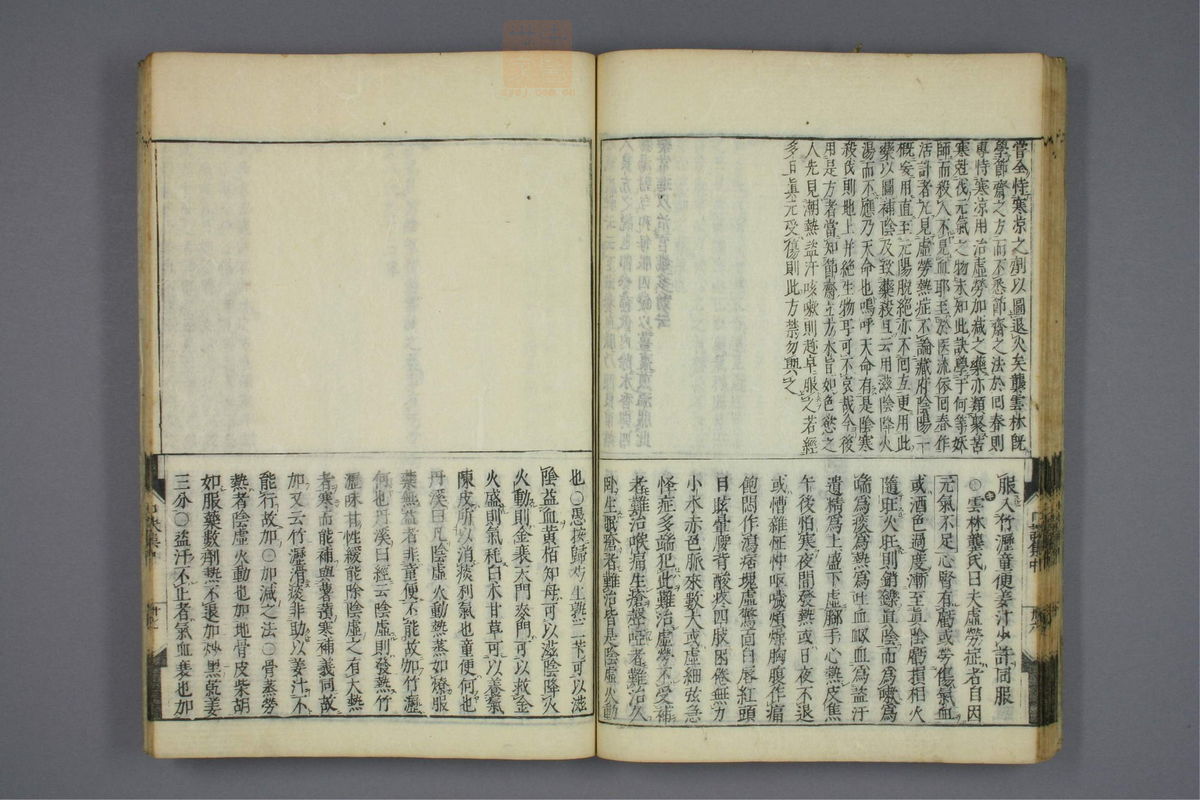 嘗全恃寒凉之劑以圖退火矣龔雲林既
學節齋之方而不悉節齋之法於回春則
專恃寒凉用治虛勞加減之藥亦類聚苦
寒尅伐元氣之物未知此訣學于何等妖
師而殺人不見血耶至於医流依回春作
活計者尤見虛勞熱症不論藏府陰陽一
概妄用直至元陽脫絶亦不回互更用此
藥以圖補陰及致藥殺旦云用滋陰降火
湯而不應乃天命也嗚呼天命有是陰寒
殺伐則地上并絶生物耳可不哀哉今後
用是方者當知節齋立方本旨如色慾之
人先見潮熱盗汗咳嗽則趂早服之若經
多日真元受傷則此方禁勿與之
服入竹瀝童便姜汁少許同服
○雲林龔氏曰夫虛勞症者自因
元氣不足心腎有虧或劳傷氣血
或酒色過度漸至真陰虧損相火
隨旺火旺則銷鑠真陰而為嗽為
喘為痰為熱為吐血衂血為盗汗
遺精為上盛下虛脚手心熱皮焦
午後怕寒夜間發熱或日夜不退
或嘈雜怔忡呕噦煩燥胸腹作痛
飽悶作瀉痞塊虛驚面白唇紅頭
目眩暈腰背酸疼四肢困倦無力
小水赤色脈來數大或虛細弦急
怪症多端犯此難治虛勞不受補
者難治喉痛生瘡聲啞者難治久
卧生眠瘡者難治皆是陰虛火動
也○愚按歸芍生熟二苄可以滋
陰益血黃栢知母可以滋陰降火
火動則金衰天門麥門可以救金
火盛則氣耗白朮甘草可以養氣
陳皮所以消痰利氣也童便何也
丹溪曰凡陰虛火動熱蒸如燎服
藥無益者非童便不能故加竹瀝
何也丹溪曰經云陰虛則發熱竹
瀝味甘性緩能除陰虛之有大熱
者寒而能補與薯蕷寒補義同故
加又云竹瀝滑痰非助以姜汁不
能行故加○加減之法○骨蒸勞
熱者陰虛火動也加地骨皮柴胡
如服藥數劑熱不退加炒黑乾姜
三分○盗汗不止者氣血衰也加